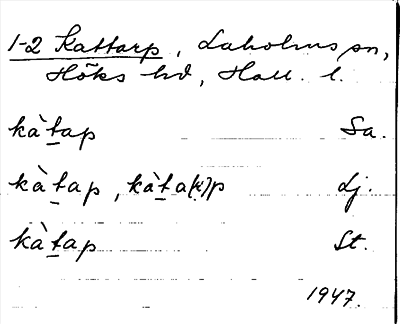 1-2 Kattarp, Laholms sn,
Höks hd, Hall. l.
kàt̲ap Sa.
kàt̲ap, kàt̲a(r)p Lj.
kàt̲ap St.
1947.